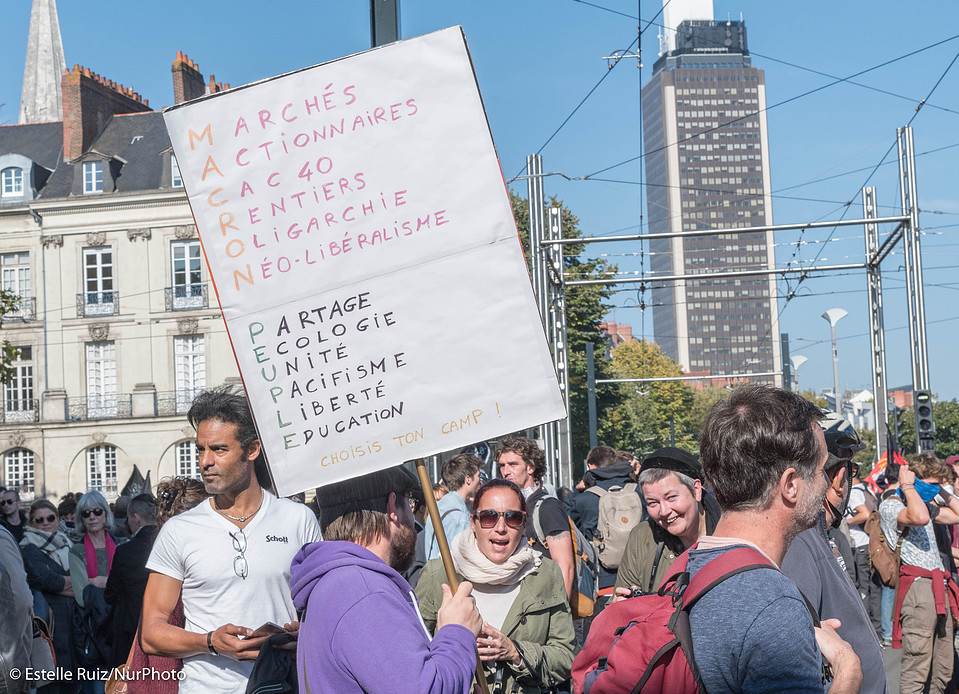 MARCHÉS
ACTIONNAIRES
CAC 40
RENTIERS
OLIGARCHIE
NÉO-LIBÉRALISME
PARTAGE
ECOLOGIE
UNITÉ
PACIFISME
LIBERTÉ
EDUCATION
CHOISIS TON CAMP !
Schott
© Estelle Ruiz/NurPhoto